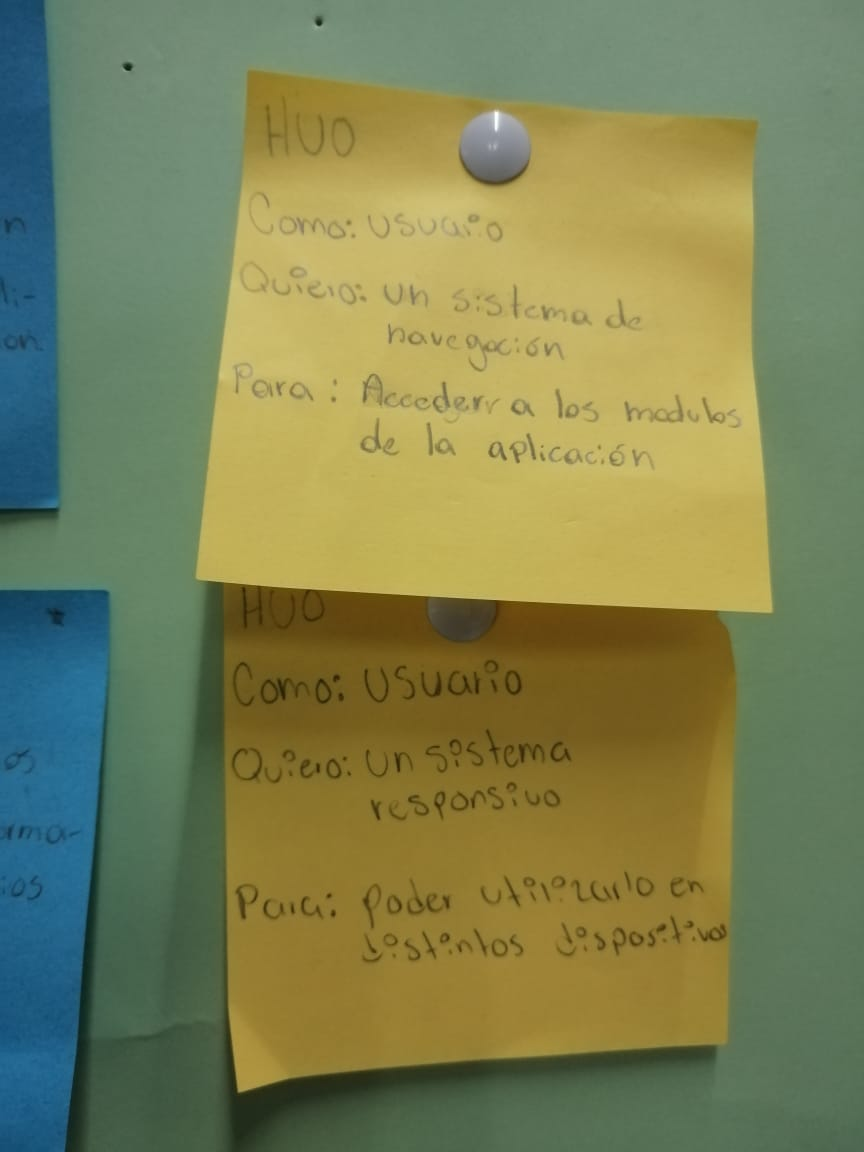 n
li-
on.
HU0
Como: usuario
Quiero: un sistema de
navegación
Para: Accederr a los modulos
de la aplicación
HU0
Como: usuario
Quiero: un sistema
responsivo
Para: poder utilizarlo en
distintos dispositivos
os
ama-
ios